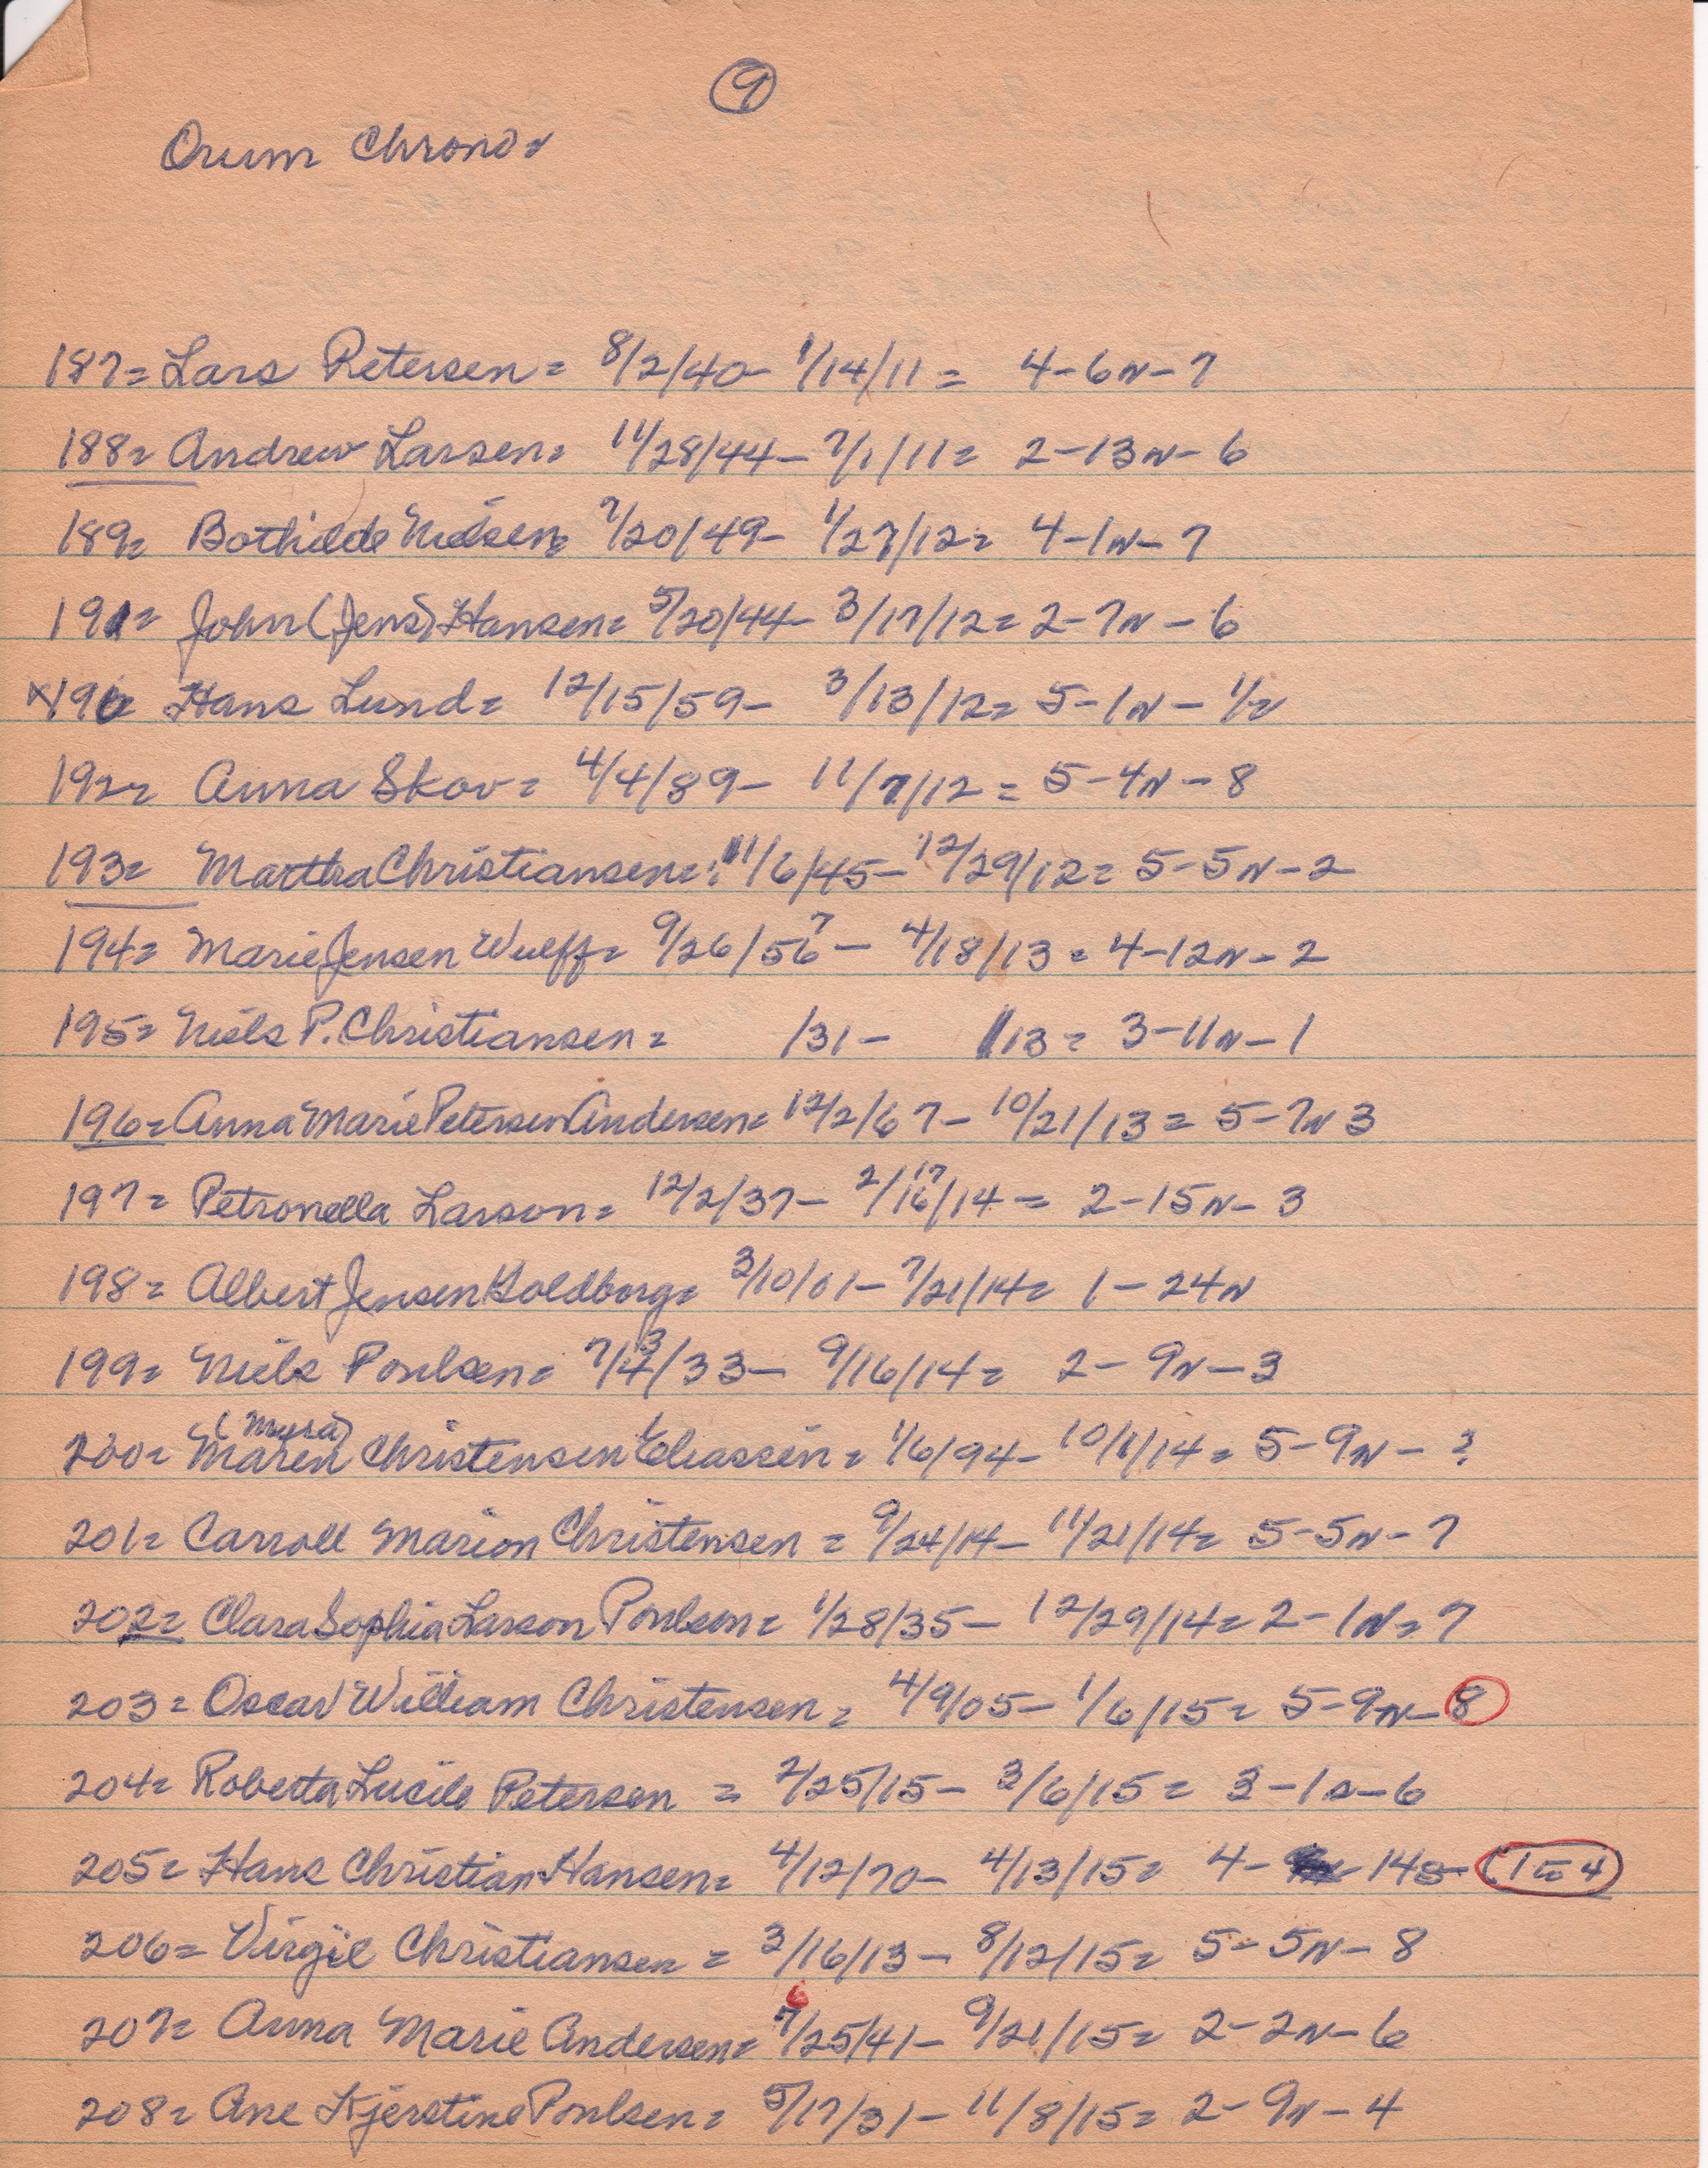 9
Orum Chrono=
187= Lars Petersen= 8/2/40- 1/14/11= 4-6N-7
188= Andrew Larsen= 11/28/44- 7/1/11= 2-13N-6
189= Bothilde Nielsen= 7/20/49- 1/27/12= 4-1N-7
191= John (Jens) Hansen= 5/20/44- 3/17/12= 2-7N-6
x190= Hans Lund= 12/15/59- 3/13/12= 5-1N-1/2
192= Anna Skov= 4/4/89- 11/7/12= 5-4N-8
193= Martha Christiansen= 11/6/45- 12/29/12= 5-5N-2
7
194= Marie Jensen Wulff= 9/26/56- 4/18/13= 4-12N-2
195= Niels P. Christiansen= /31- /13= 3-11N-1
196= Anna Marie Petersen Andersen= 12/2/67- 10/21/13= 5-7N 3
17
197= Petronella Larson= 12/2/37- 2/16/14= 2-15N-3
198= Albert Jensen Goldborg= 3/10/01- 7/21/14= 1-24N
3
199= Niels Poulsen= 7/4/33- 9/16/14= 2-9N-3
(Myra)
200= Maren Christensen Eliassen= 1/6/94- 10/1/14= 5-9N-?
201= Carroll Marion Christensen= 9/24/14- 11/21/14= 5-5N-7
202= Clara Sophia Larson Poulsen= 1/28/35- 12/29/14= 2-1N=7
203= Oscar William Christensen= 4/9/05- 1/6/15= 5-9N-8
204= Roberta Lucile Petersen= 2/25/15- 3/6/15= 3-1s-6
205= Hans Christian Hansen= 4/12/70- 4/13/15= 4- 14s- 1 to 4
206= Virgil Christiansen= 3/16/13- 8/12/15= 5-5N-8
6
207= Anna Marie Andersen= 7/25/41- 9/21/15= 2-2N-6
208= Ane Kjerstine Poulsen= 5/17/31- 11/8/15= 2-9N-4